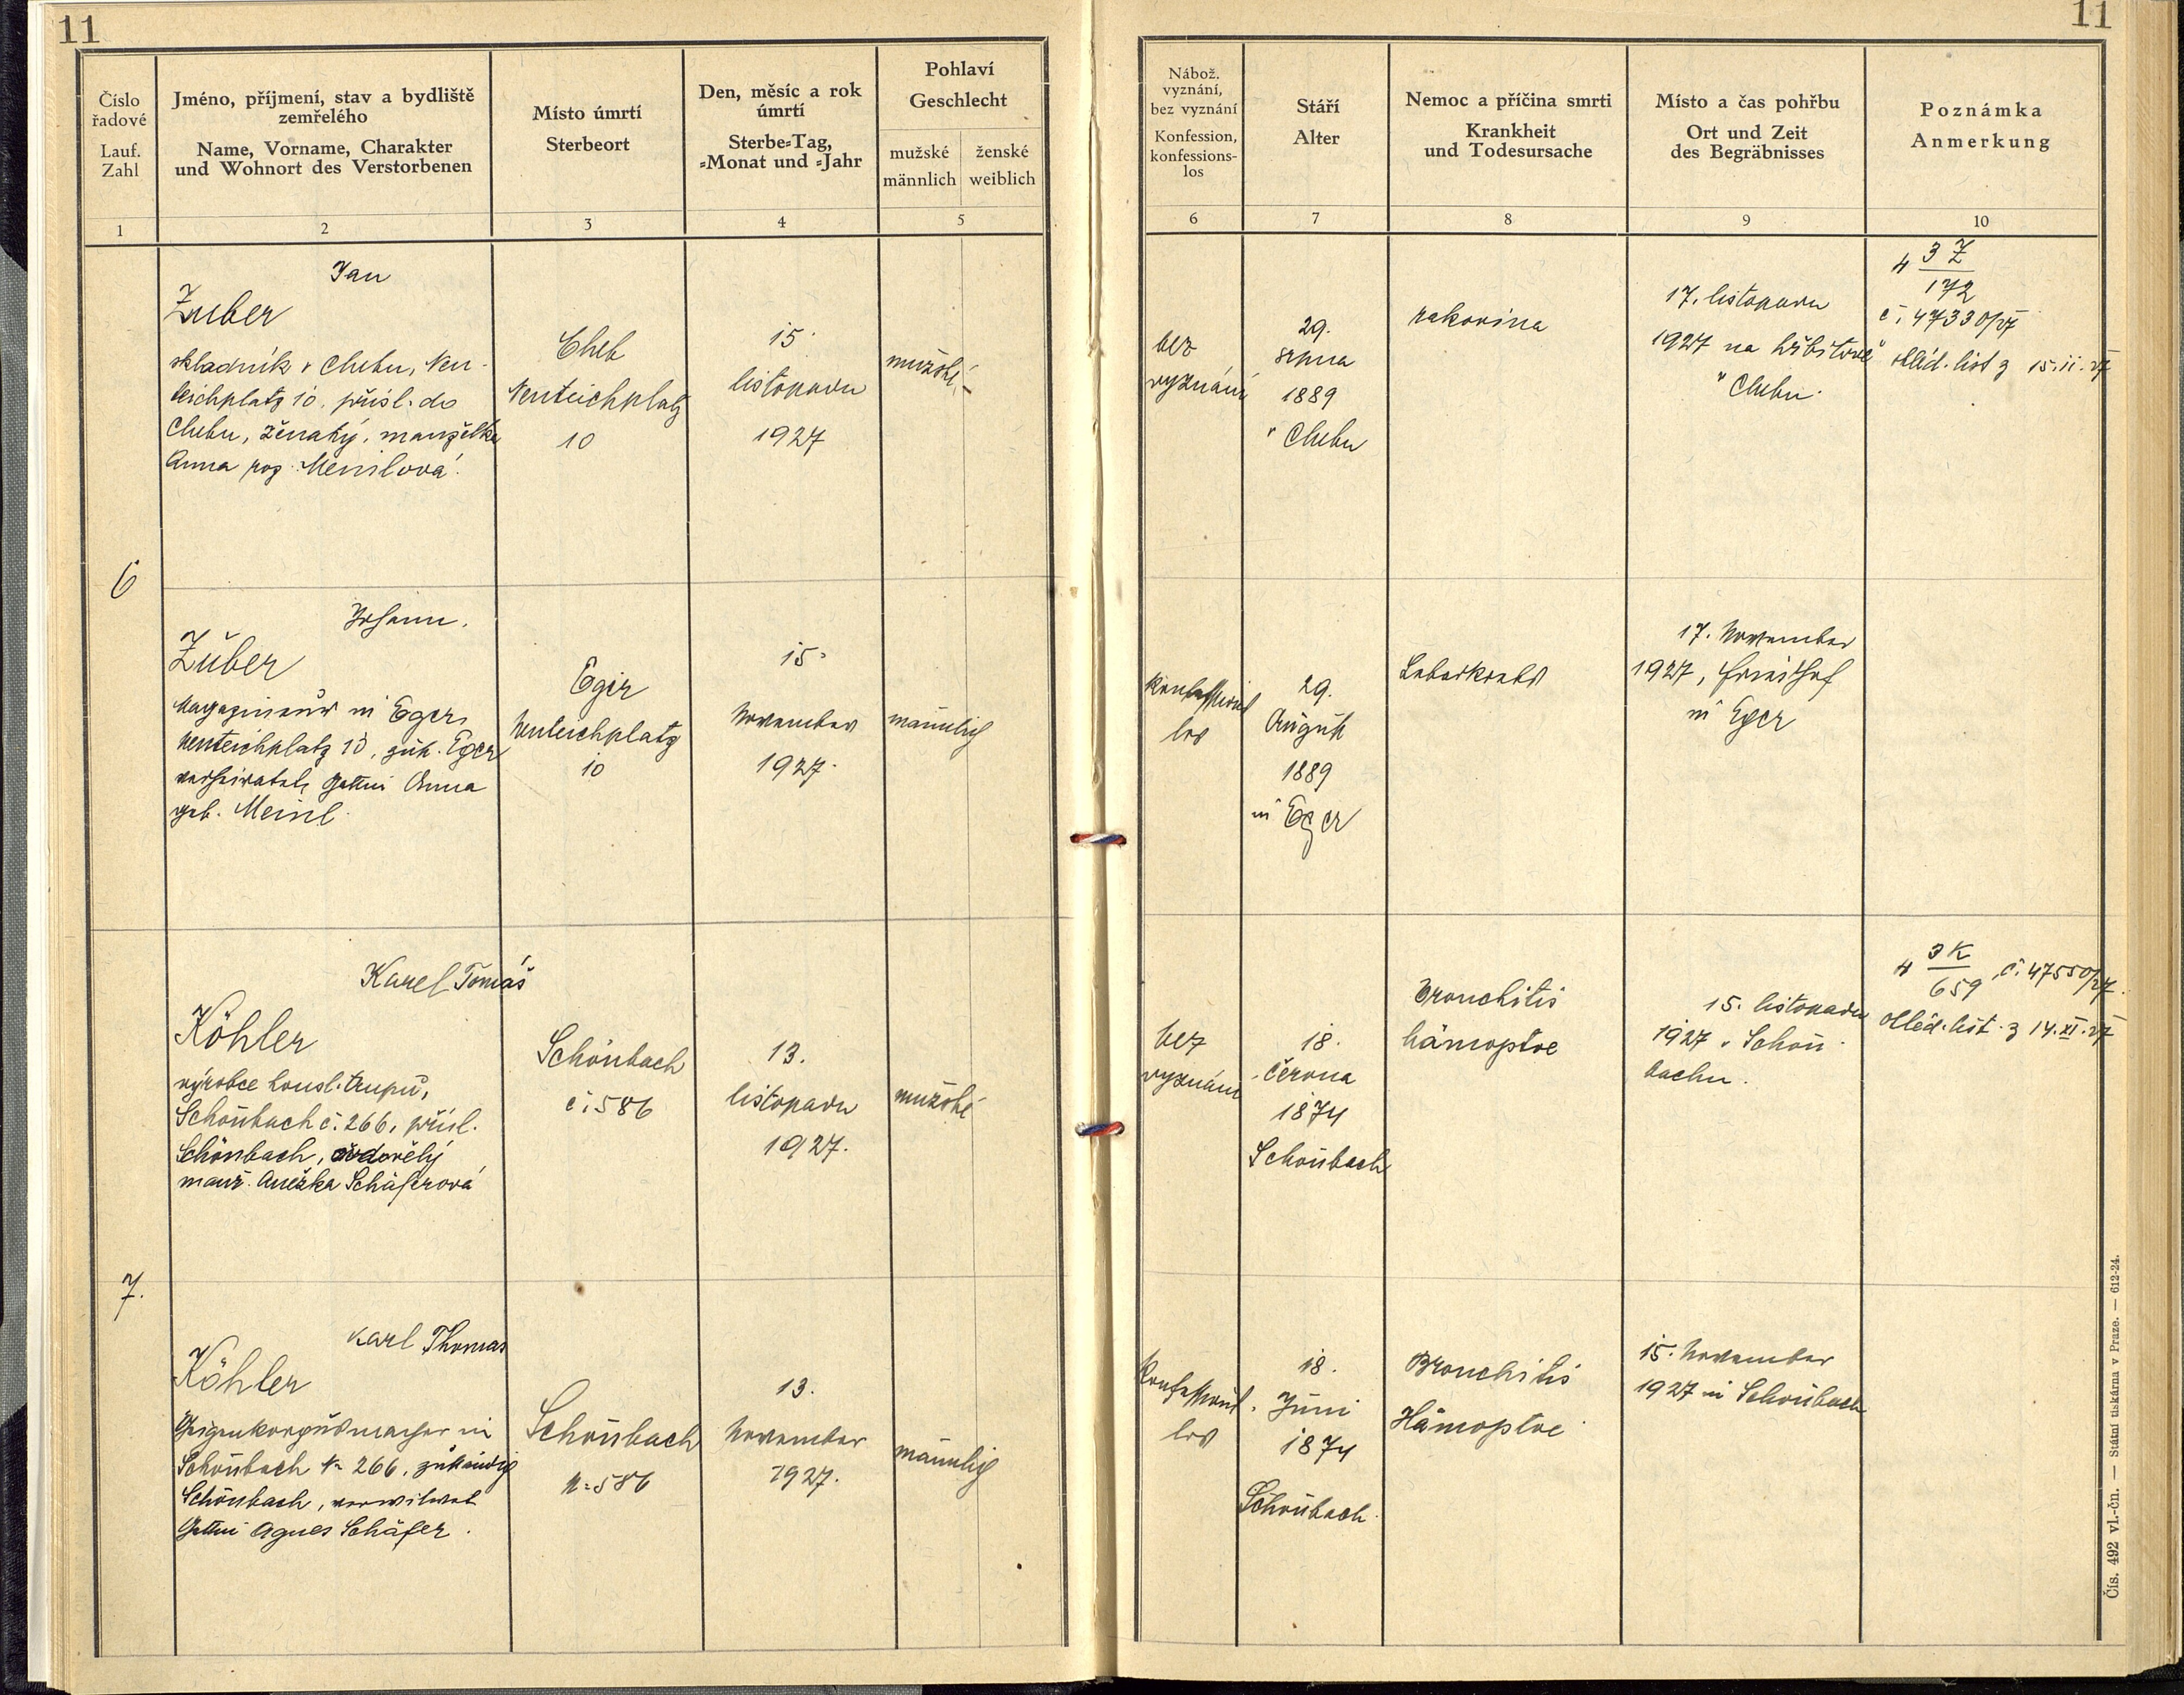 11
11
Číslo
řadové
Lauf.
Zahl
Jméno, příjmení, stav a bydliště
zemřelého
Name, Vorname, Charakter
und Wohnort des Verstorbenen
Místo úmrtí
Sterbeort
Den, měsíc a rok
úmrtí
Sterbe-Tag,
-Monat und -Jahr
Pohlaví
Geschlecht
mužské
männlich
ženské
weiblich
Nábož.
vyznání,
bez vyznání
Konfession,
konfessions-
los
Stáří
Alter
Nemoc a příčina smrti
Krankheit
und Todesursache
Místo a čas pohřbu
Ort und Zeit
des Begräbnisses
Poznámka
Anmerkung
1
2
3
4
5
6
7
8
9
10
6
Jan
Zuber
skladník v Chebu, Neu-
teichplatz 10. přísl. do
Chebu, ženatý, manželka
Anna roz. Meinlová.
Cheb
Neuteichplatz
10
15.
listopadu
1927
mužské
bez
vyznání
29.
srpna
1889
v Chebu
rakovina
17. listopadu
1927 na hřbitově
v Chebu.
4 3 Z
172
č. 47330/27
ohled. list z 15.11.27
Johann.
Zuber
Magazineur in Eger,
Neuteichplatz 10, zust. Eger
verheiratet, Gattin Anna
geb. Meinl.
Eger
Neuteichplatz
10
15.
November
1927.
männlich
konfessions
los
29.
August
1889
in Eger
Leberkrebs
17. November
1927, Friedhof
in Eger
7.
Karel Tomáš
Köhler
výrobce housl. trupů,
Schönbach č. 266, přísl.
Schönbach, ovdovělý
manž. Anežka Schäferová
Schönbach
č. 586
13.
listopadu
1927.
mužské
bez
vyznání
18.
června
1874
Schönbach
Bronchitis
hämoptoe
15. listopadu
1927 v Schön-
bachu.
4 3 K
659 č. 47550/27.
ohled. list. z 14.XI.27
Karl Thomas
Köhler
Geigenkorpusmacher in
Schönbach N= 266, zuständig
Schönbach, verwitwet
Gattin Agnes Schäfer.
Schönbach
N= 586
13.
November
1927.
männlich
Konfessions
los
18.
Juni
1874
Schönbach.
Bronchitis
Hämoptoe
15. November
1927 in Schönbach
Čís. 492 vl.-čn. — Státní tiskárna v Praze. — 612-24.